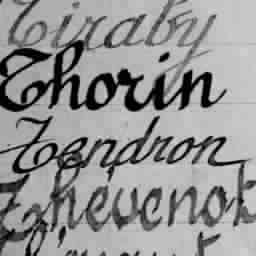 Tiraby
Thorin
Tendron
Thévenot